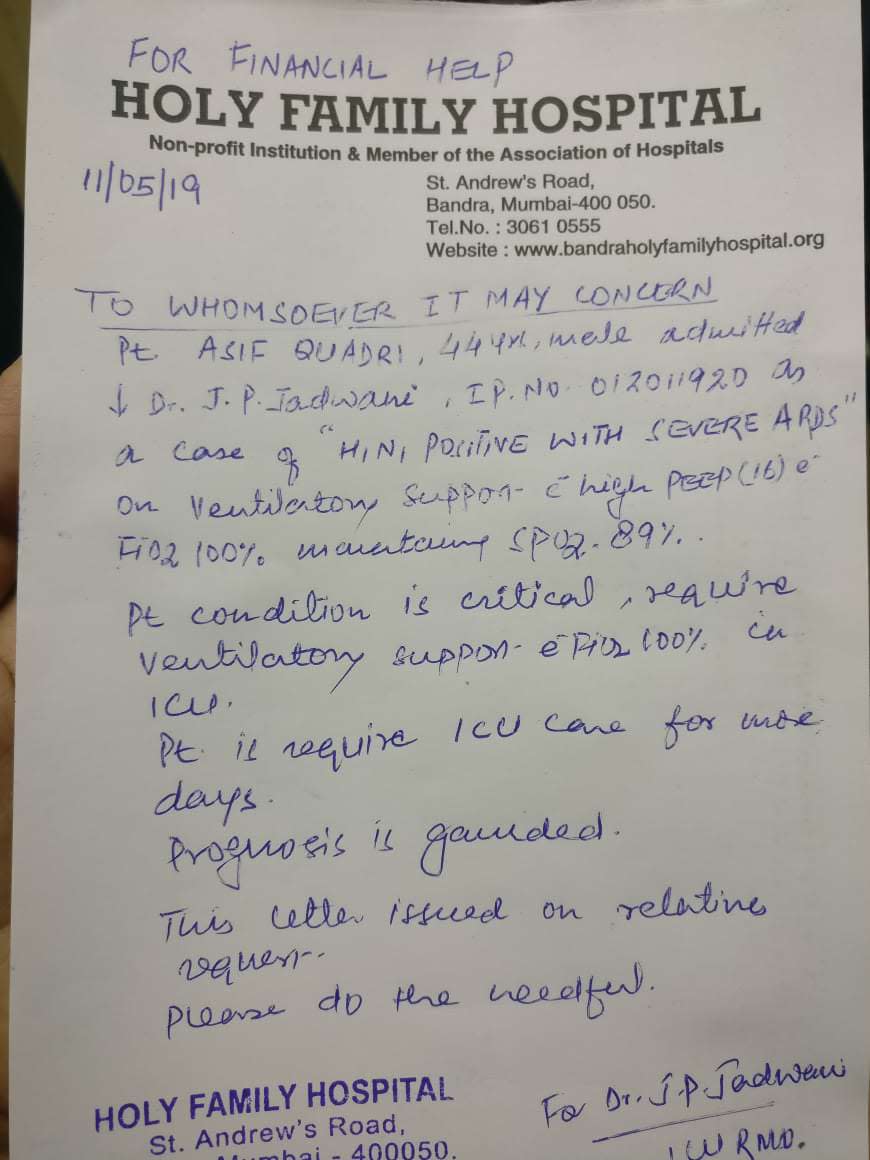 FOR FINANCIAL HELP
HOLY FAMILY HOSPITAL
Non-profit Institution & Member of the Association of Hospitals
11/05/19
St. Andrew's Road,
Bandra, Mumbai-400 050.
Tel.No. : 3061 0555
Website : www.bandraholyfamilyhospital.org
TO WHOMSOEVER IT MAY CONCERN
Pt ASIF QUADRI, 44 yrs, male admitted
↓ Dr. J. P. Jadwani, IP. NO. 012011920 as
a case of "H1N1 POSITIVE WITH SEVERE ARDS"
on ventilatory support c̄ high PEEP(16) c̄
FiO2 100% maintaining SPO2-89%.
Pt condition is critical, require
ventilatory support c̄ FiO2 100% in
ICU.
Pt. is require ICU care for more
days.
Prognosis is gaurded.
This letter issued on relatives
request.
Please do the needful.
HOLY FAMILY HOSPITAL
St. Andrew's Road,
Mumbai - 400050.
For Dr. J.P. Jadwani
ICU RMO.